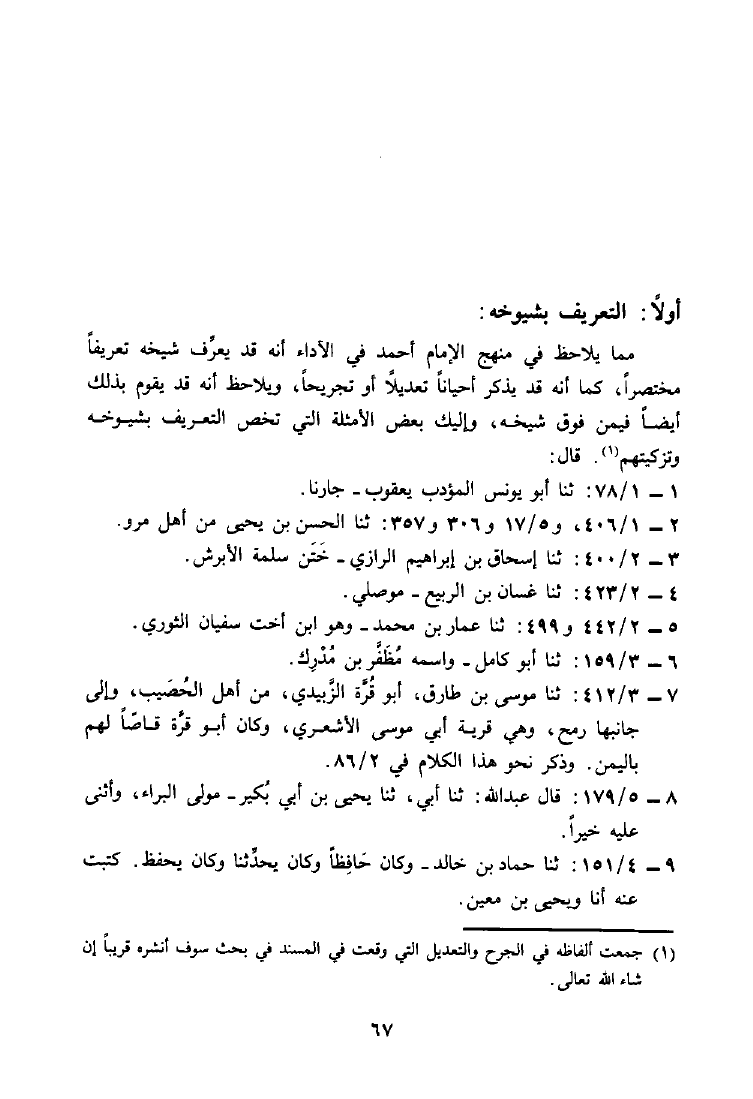 أولاً: التعريف بشيوخه:
مما يلاحظ في منهج الإمام أحمد في الآداء أنه قد يعرِّف شيخه تعريفاً
مختصراً، كما أنه قد يذكر أحياناً تعديلاً أو تجريحاً، ويلاحظ أنه قد يقوم بذلك
أيضاً فيمن فوق شيخه، وإليك بعض الأمثلة التي تخص التعريف بشيوخه
وتزكيتهم(١). قال:
١ ــ ٧٨/١: ثنا أبو يونس المؤدب يعقوب ـ جارنا.
٢ ــ ٤٠٦/١، و١٧/٥ و٣٠٦ و٣٥٧: ثنا الحسن بن يحيى من أهل مرو.
٣ ــ ٤٠٠/٢: ثنا إسحاق بن إبراهيم الرازي ـ خَتَن سلمة الأبرش.
٤ ــ ٤٢٣/٢: ثنا غسان بن الربيع ـ موصلي.
٥ ــ ٤٤٢/٢ و٤٩٩: ثنا عمار بن محمد ـ وهو ابن أخت سفيان الثوري.
٦ ــ ١٥٩/٣: ثنا أبو كامل ـ واسمه مُظَفَّر بن مُدْرِك.
٧ ــ ٤١٢/٣: ثنا موسى بن طارق، أبو قُرَّة الزَّبيدي، من أهل الحُصَيب، وإلى
جانبها رمح، وهي قرية أبي موسى الأشعري، وكان أبو قرَّة قاصّاً لهم
باليمن. وذكر نحو هذا الكلام في ٨٦/٢.
٨ ــ ١٧٩/٥: قال عبدالله: ثنا أبي، ثنا يحيى بن أبي بُكير ـ مولى البراء، وأثنى
عليه خيراً.
٩ ــ ١٥١/٤: ثنا حماد بن خالد ـ وكان حَافِظاً وكان يحدِّثنا وكان يحفظ. كتبت
عنه أنا ويحيى بن معين.
(١) جمعت ألفاظه في الجرح والتعديل التي وقعت في المسند في بحث سوف أنشره قريباً إن
شاء الله تعالى.
٦٧